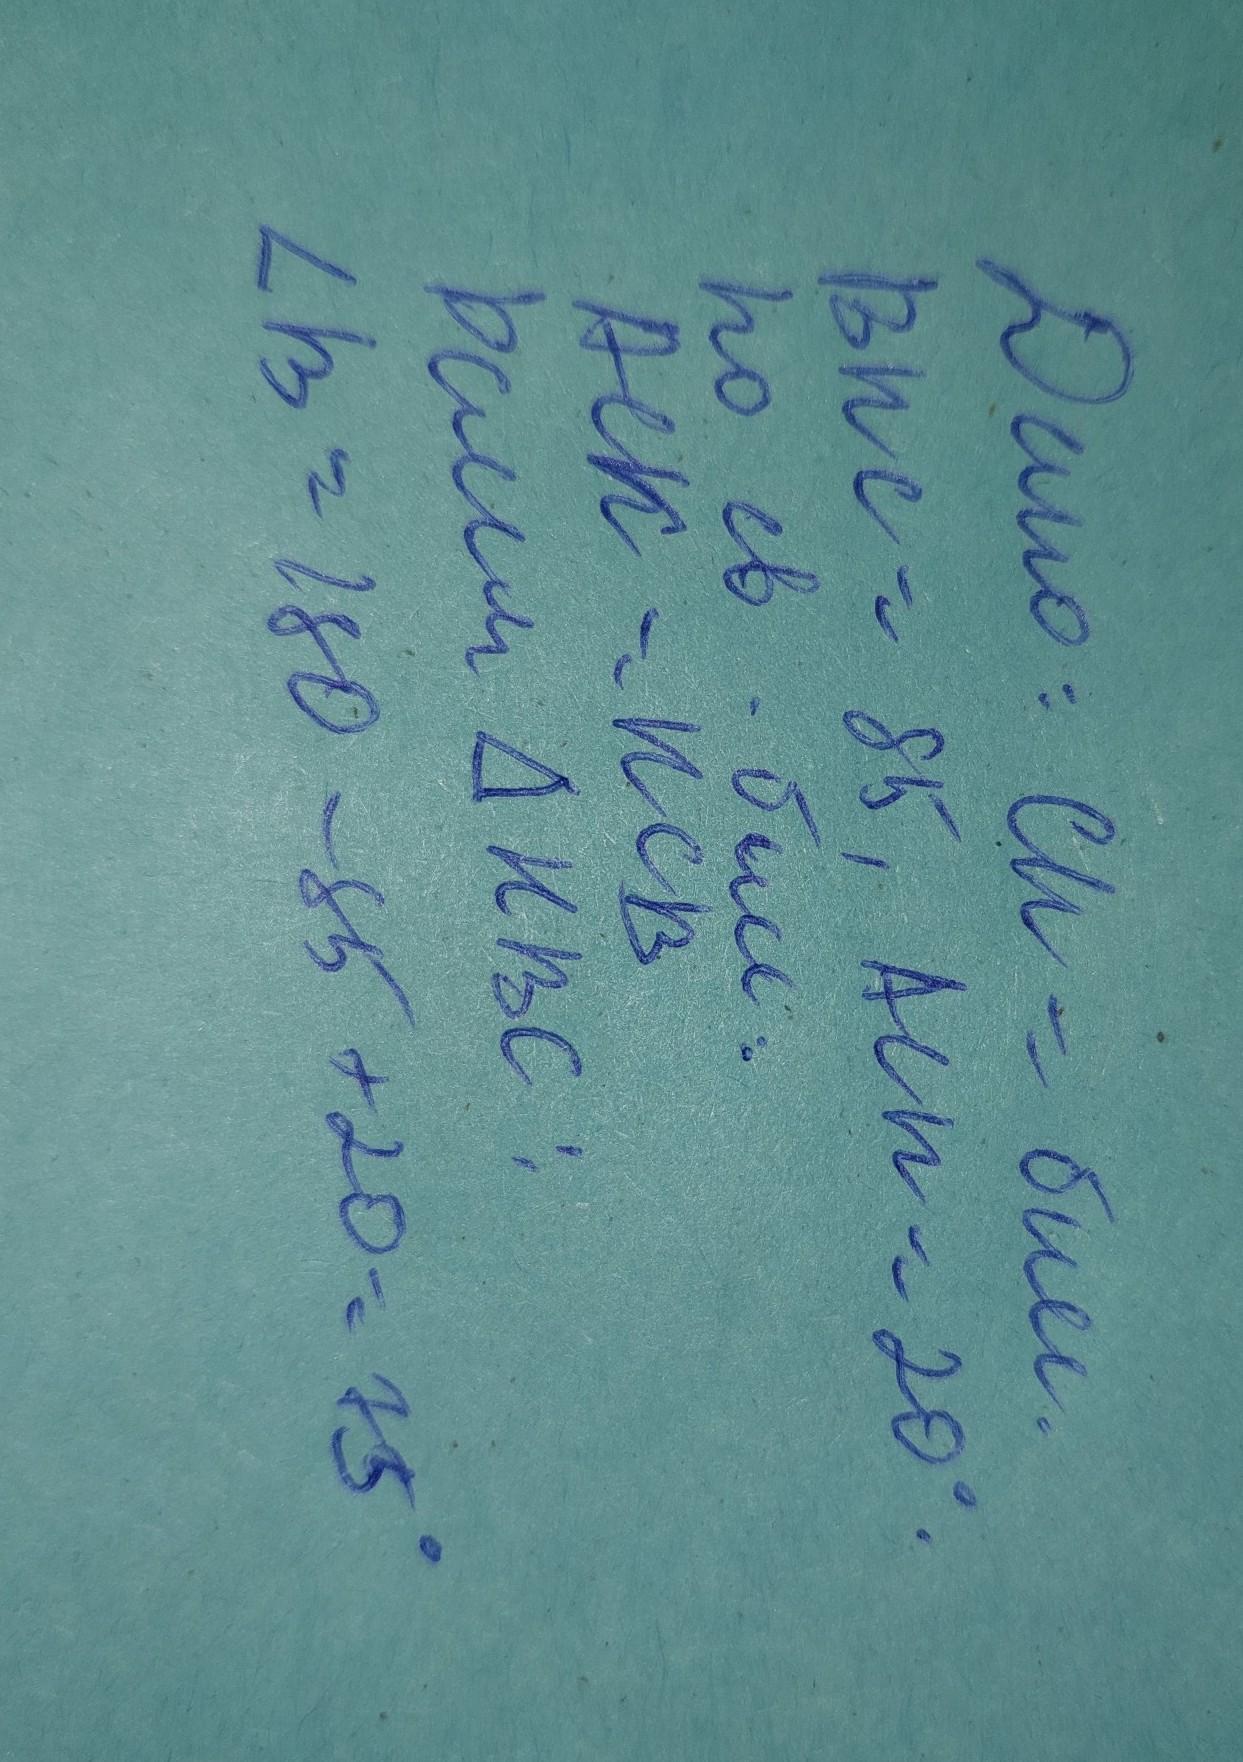 Дано: СК = бисс.
ВКС = 85, АСК = 20°.
по св. бисс:
АСК = КСВ
Расм Δ КВС:
∠В = 180 - 85 + 20 = 75°